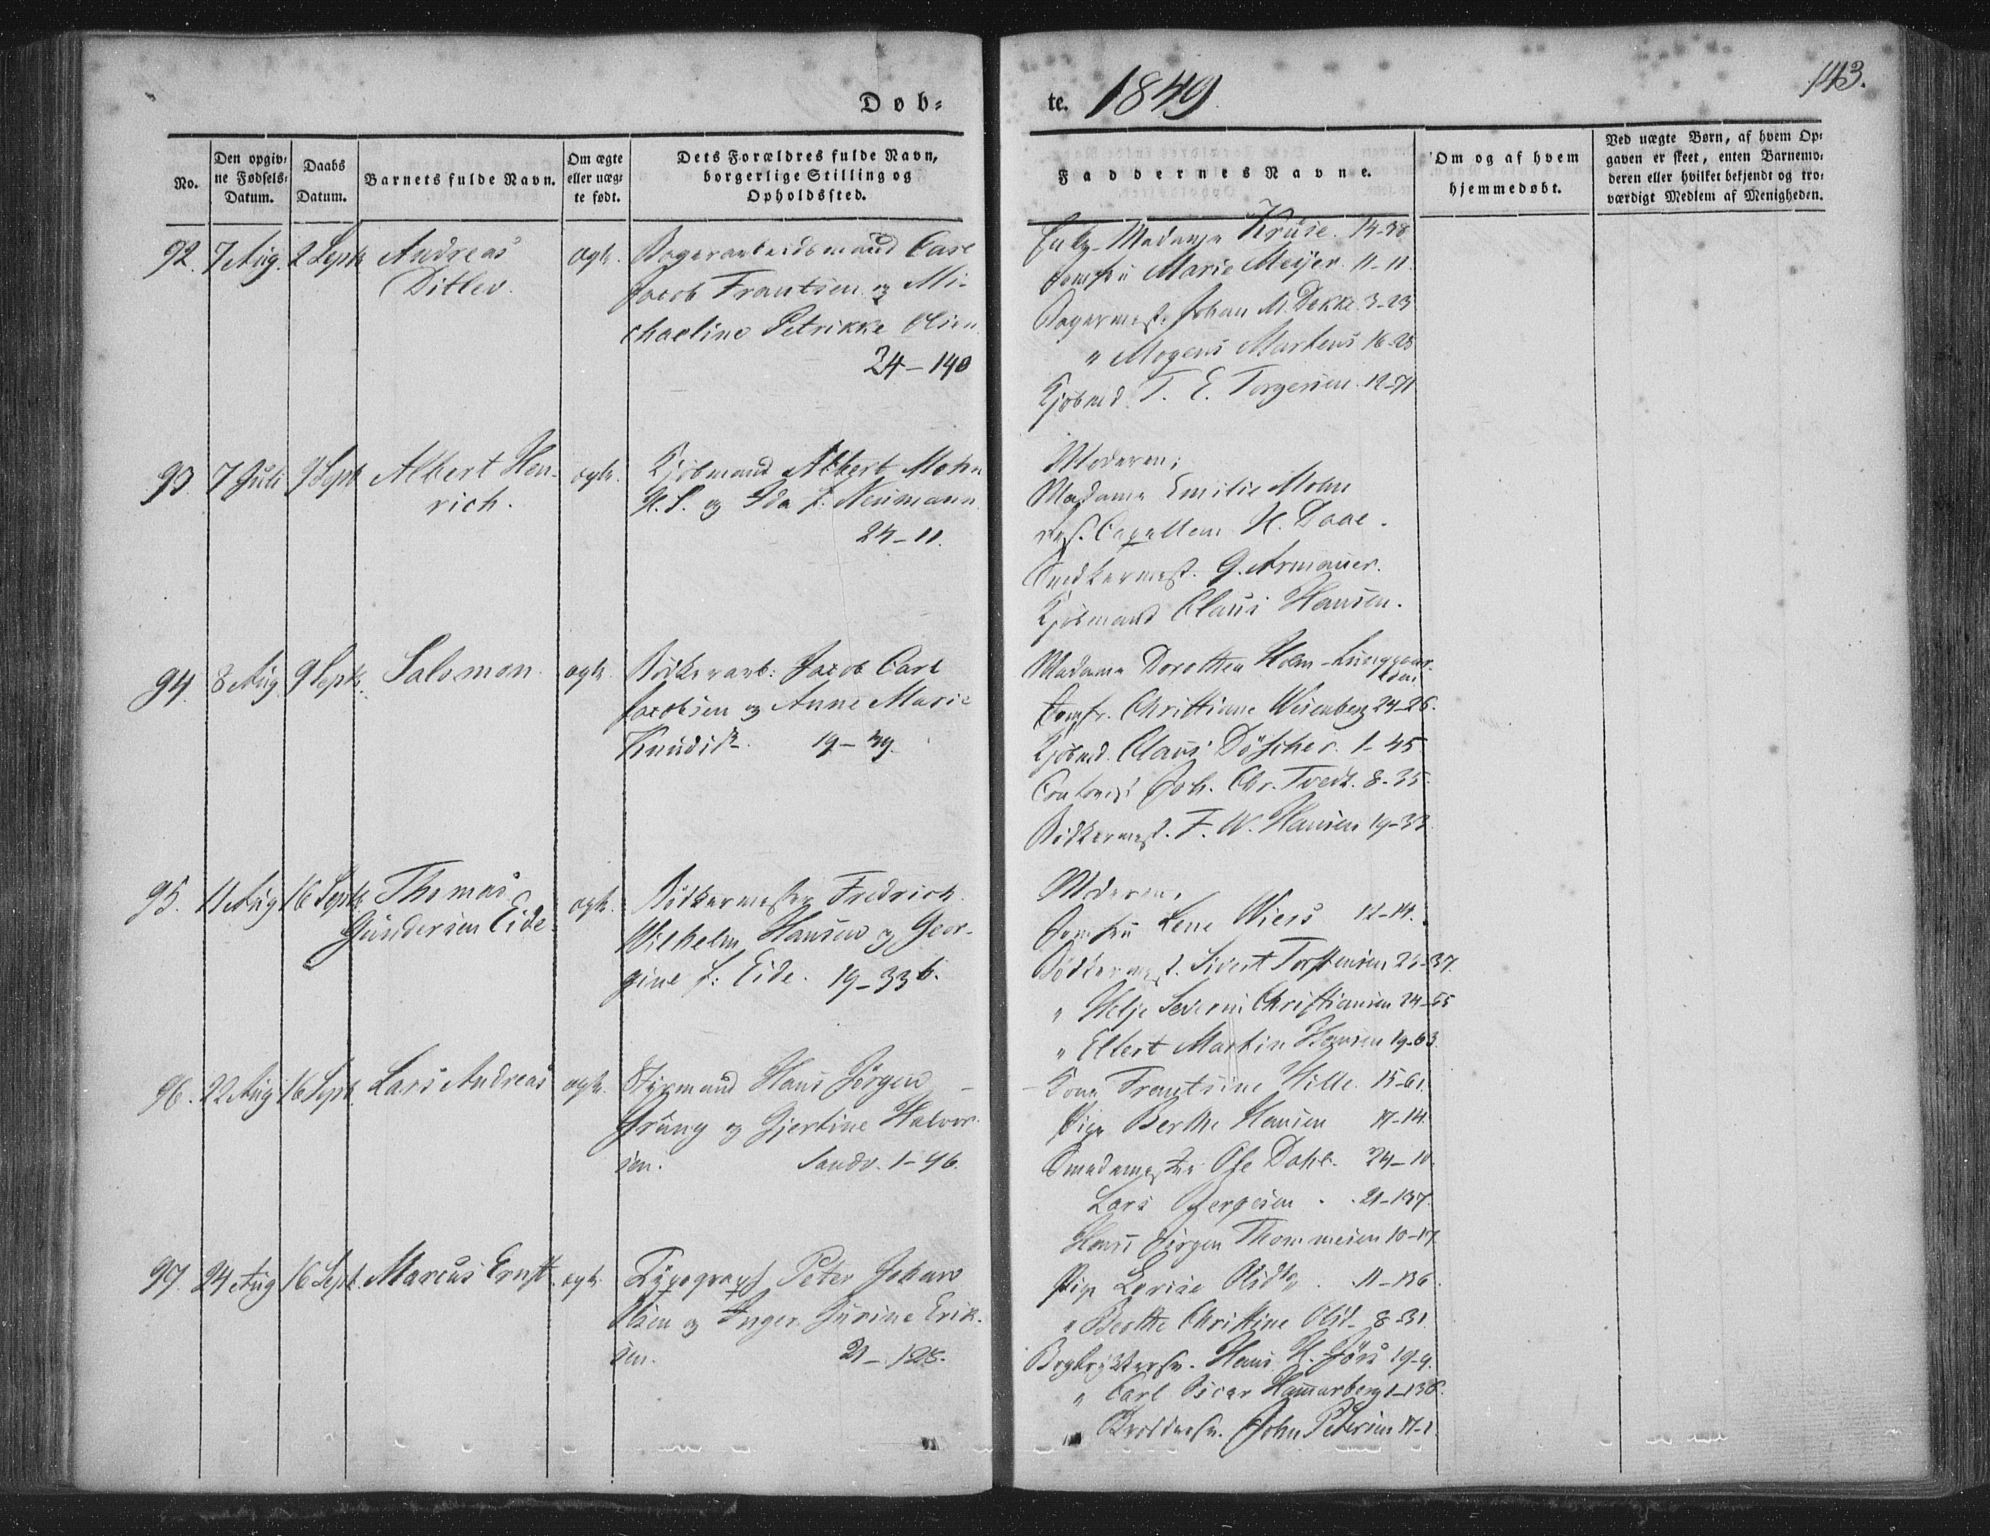 Døb-
te. 1849
143.
No.
Den opgiv-
ne Fødsels-
Datum.
Daabs
Datum.
Barnets fulde Navn.
Om ægte
eller uæg-
te født.
Dets Forældres fulde Navn,
borgerlige Stilling og
Opholdssted.
Faddernes Navne.
Om og af hvem
hjemmedøbt.
Ved uægte Børn, af hvem Op-
gaven er skeet, enten Barnemo-
deren eller hvilket bekjendt og tro-
værdigt Medlem af Menigheden.
92. 7 Aug. 2 Septb Andreas
Ditlev.
ægte.
Bagerarbeidsmand Carl
Jacob Frantsen og Mi-
chaeline Petrikke Olsen
24-140
Madame Kruse. 14-38
Jomfru Marie Meyer. 11-11.
Bagermest. Johan M. Dekke. 3-23
" Mogens Martens 16-28
Kjøbmd. T. E. Torgersen. 12-71
93. 7 Juli 9 Septb Albert Hen-
rich.
ægte.
Kjøbmand Albert Mohn
H. S. og Ida f. Neumann
24-11.
Moderen;
Madame Emilie Mohn
res. Capellan H. Daae.
Snedkermest. G. Armauer.
Kjøbmand Claus Hansen.
94. 8 Aug. 9 Septb. Salomon.
ægte.
Bødkerarb: Jacob Carl
Jacobsen og Anne Marie
Knudsdr. 19-49.
Madame Dorothea Holm-Lunggaar-
den
Jomfr. Christiane Wesenberg 24-26.
Kjøbmd. Claus Döscher. 1-45
Joh. Chr. Tvedt. 8-35.
Bødkermest. F. W. Hansen 19-33
95. 11 Aug 16 Septb Thomas
Gundersen Eide.
ægte.
Bødkermester Fredrich
Wilhelm Hansen og Geor-
gine f: Eide. 19-33 b.
Moderen,
Jomfru Lene Wiers 12-14.
Bødkermest. Sivert Torstensen 24-37.
" Helje Severin Christiansen 24-55
" Elbert Martin Hansen 19-63
96. 22 Aug 16 Septb. Lars Andreas
ægte.
Styrmand Hans Jørgen
Grung og Gjertine Halvor-
sen. Sandv. 1-96.
Kone Frantsine Hille. 15-61.
Pige Berthe Hansen 17-14.
Smedemester Ole Dahl. 24-10.
Lars Børgesen. 21-137.
Hans Jørgen Thommesen 10-17
97. 24 Aug 16 Septb. Marcus Ernst.
ægte.
Typograph Peter Johan
Olsen og Inger Jurine Erik-
sen. 21-128.
Pige Lovise Olsdtr. 11-136.
" Berthe Christine Olsd. 8-31.
Bogtrykkersv. Hans H. Jörs 19-9.
" Carl Oscar Hammarberg 1-136.
Brodersv. John Petersen 17-1.